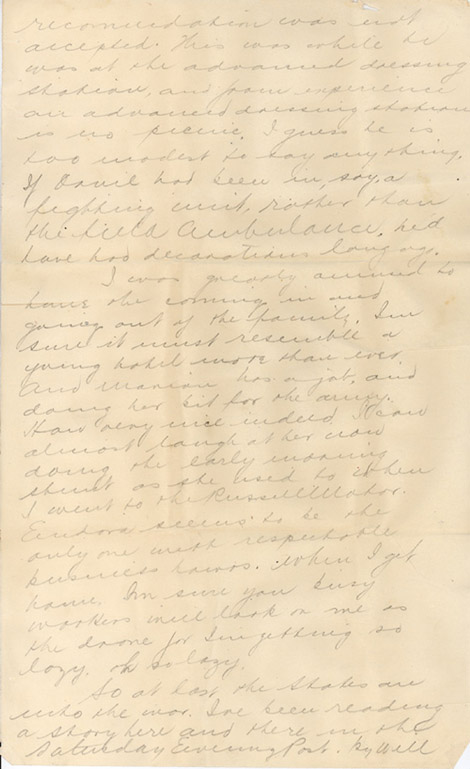 recomendation was not
accepted. This was while he
was at the advanced dressing
station, and from experience
an advanced dressing station
is no picnic. I guess he is
too modest to say anything.
If David had been in, say, a
fighting unit, rather than
the Field Ambulance, he'd
have had decorations long ago.
I was greatly amused to
have the coming in and
going out of the family. I'm
sure it must resemble a
young hotel more than ever.
And Marian has a job, and
doing her bit for the army.
How very nice indeed. I can
almost laugh at her now
doing the early morning
stunt as she used to when
I went to the Russell Motor.
Eudora seems to be the
only one with respectable
business hours. When I get
home. I'm sure you busy
workers will look on me as
the drone for I'm getting so
lazy. oh so lazy.
So at last the States are
into the war. I've been reading
a story here and there in the
Saturday Evening Post. by Will